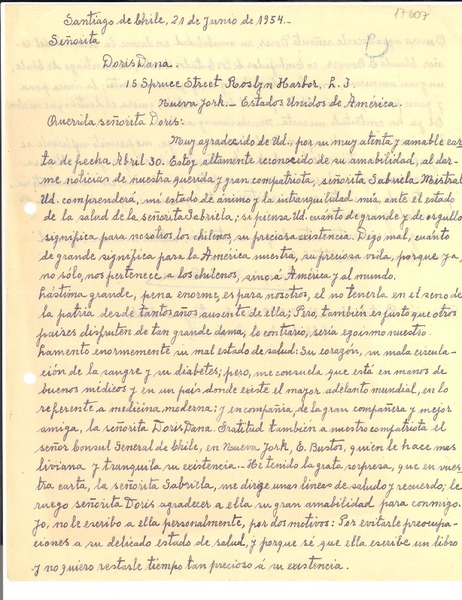 17607
Santiago de Chile, 21 de Junio de 1954.-
Señorita
Doris Dana.
15 Spruce Street Roslyn Harbor, L. I
Nueva York.- Estados Unidos de América.
Querida señorita Doris:
Muy agradecido de Ud., por su muy atenta y amable car
ta de fecha Abril 30. Estoy altamente reconocido de su amabilidad, al dar
me noticias de nuestra querida y gran compatriota, señorita Gabriela Mistral
Ud. comprenderá, mi estado de ánimo y la intranquilidad mía, ante el estado
de la salud de la señorita Gabriela; si piensa Ud. cuánto de grande y de orgullo
significa para nosotros los chilenos, su preciosa existencia. Digo mal, cuánto
de grande significa para la América nuestra, su preciosa vida, porque ya,
no sólo, nos pertenece a los chilenos, sinó á América y al mundo.
Lástima grande, pena enorme, es para nosotros, el no tenerla en el seno de
la patria desde tantos años ausente de ella; Pero, también es justo que otros
países disfruten de tan grande dama; lo contrario, sería egoismo nuestro.
Lamento enormemente su mal estado de salud: Su corazón, su mala circula-
ción de la sangre y su diabetes; pero, me consuela que está en manos de
buenos médicos y en un país donde existe el mayor adelanto mundial, en lo
referente a medicina moderna; y en compañía de la gran compañera y mejor
amiga, la señorita Doris Dana. Gratitud también a nuestro compatriota el
señor Consul General de Chile, en Nueva York, E. Bustos, quien le hace mas
liviana y tranquila, su existencia.- He tenido la grata sorpresa, que en vues
tra carta, la señorita Gabriela, me dirige unas líneas de saludo y recuerdo; le
ruego señorita Doris agradecer a ella su gran amabilidad para conmigo.
Yo, no le escribo a ella personalmente, por dos motivos: Por evitarle preocupa-
ciones a su delicado estado de salud, y porque sé que ella escribe un libro
y no quiero restarle tiempo tan precioso á su existencia.